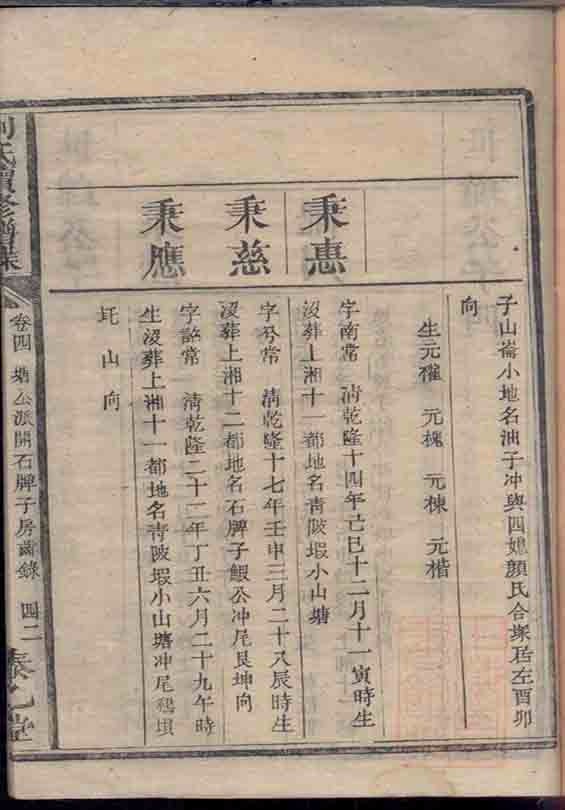 子山崙小地名油子冲與四媳顏氏合塚居左酉卯
向
生元㰌 元槐 元棟 元楷
秉惠
字南常 清乾隆十四年己巳十二月十一寅時生
沒葬上湘十一都地名青陂塅小山塘
秉慈
字兮常 清乾隆十七年壬申三月二十八辰時生
沒葬上湘十二都地名石牌子鰕公冲尾艮坤向
秉應
字 常 清乾隆二十二年丁丑六月二十九午時
生沒葬上湘十一都地名青陂塅小山塘冲尾鵶垻
圫山向
氏續修
卷四 塘公派開石牌子房齒錄 四二
堂